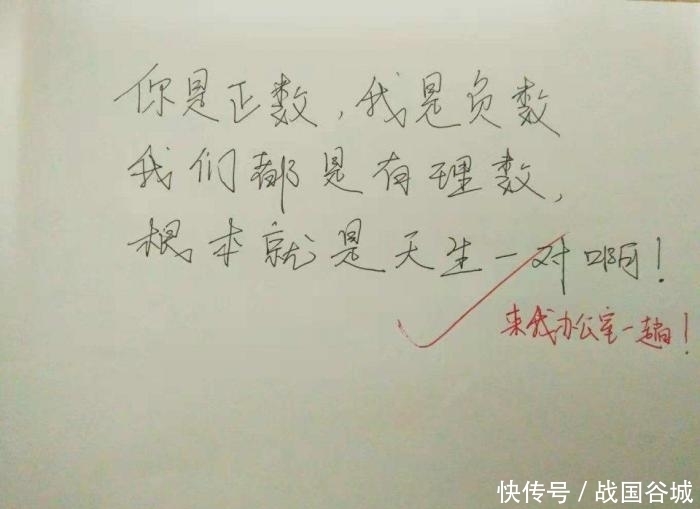 你是正数，我是负数
我们都是有理数，
根本就是天生一对啊！
来我办公室一趟！
快传号 / 战国谷城